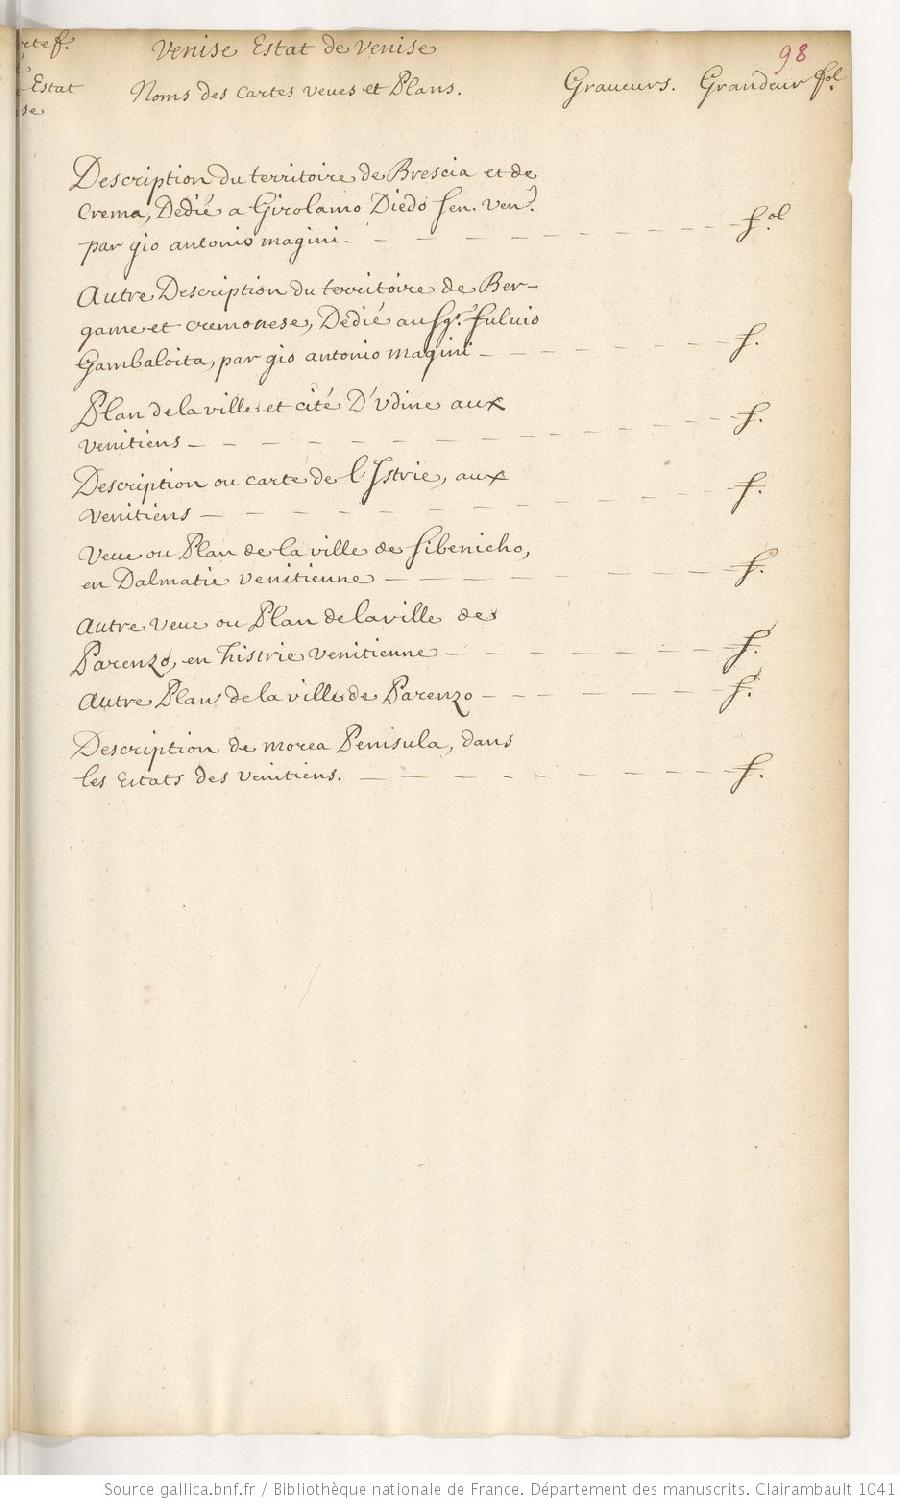 Venise Estat de Venise
98
Estat
se
Noms des Cartes veues et Plans. Graueurs. Grandeur fol.
Description du territoire de Brescia et de
Crema, Dedié a Girolamo Diedo Sen. Ven.
par gio antonio magini. - - - - - - - - fol
Autre Description du territoire de Ber-
game et cremonese, Dedié au Sgr. Fuluio
Gambaloita, par gio antonio magini - - - - - - f.
Plan de la ville et cité D'Vdine aux
venitiens - - - - - - - - - - - - f.
Description ou carte de l'Istrie, aux
venitiens - - - - - - - - - - - - f.
Veue ou Plan de la ville de Sibenicho,
en Dalmatie venitienne - - - - - - - f.
Autre veue ou Plan de la ville de
Parenzo, en histrie venitienne - - - - - - - f.
Autre Plan de la ville de Parenzo - - - - - - f.
Description de morea Penisula, dans
les Estats des venitiens. - - - - - - - - f.
Source gallica.bnf.fr / Bibliothèque nationale de France. Département des manuscrits. Clairambault 1041